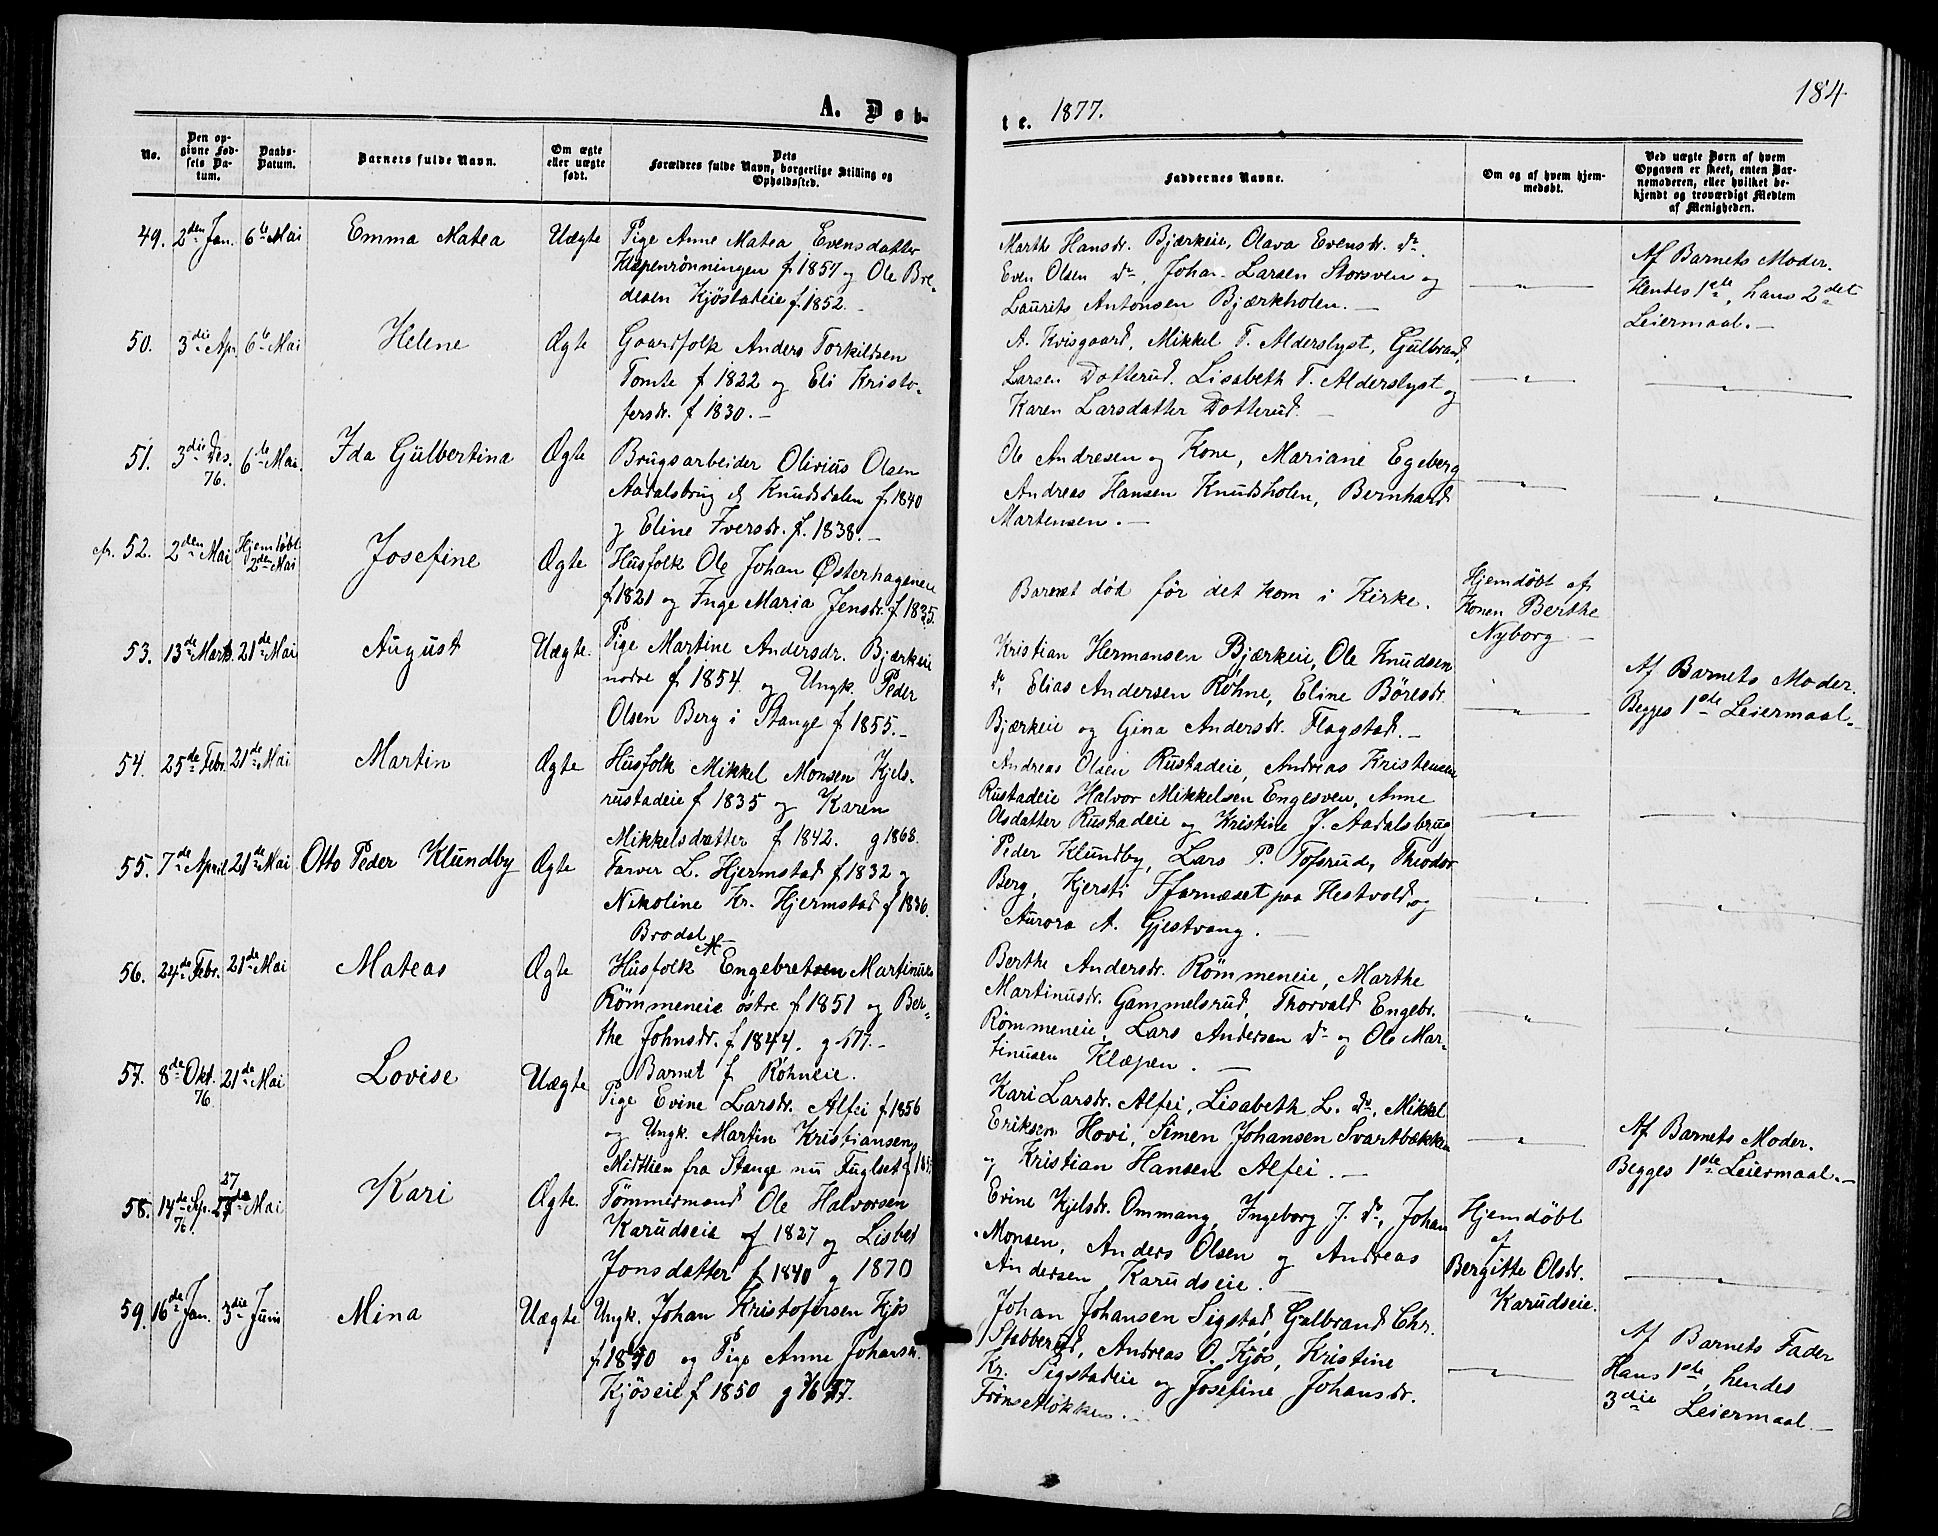 184
A. Døb-
te. 1877.
No.
Den op-
givne Fød-
sels Da-
tum.
Daabs-
Datum.
Barnets fulde Navn.
Om ægte
eller uægte
født.
Dets
Forældres fulde Navn, borgerlige Stilling og
Opholdssted.
Faddernes Navne.
Om og af hvem hjem-
medøbt.
Ved uægte Børn af hvem
Opgaven er skeet, enten Bar-
nemoderen, eller hvilket be-
kjendt og troværdigt Medlem
af Menigheden.
49. 2den Jan. 6te Mai Emma Matea Uægte
Pige Anne Matea Evensdatter
Klæpenrønningen f. 1857 og Ole Bre-
desen Kjöstadeie f. 1852.
Marthe Hansdr. Bjærkeie, Olava Evensdr. do.
Even Olsen do, Johan Larsen Storsven og
Laurits Antonsen Bjærkholen. —
— " —
Af Barnets Moder.
Hendes 1ste, hans 2det
Leiermaal. —
50. 3die Apr 6te Mai Helene Ægte
Gaardfolk Anders Torkildsen
Tomte f 1822 og Eli Kristo-
fersdr. f 1830. —
A. Kvisgaard, Mikkel T. Alderslyst, Gulbrand
Larsen Dotterud. Lisabeth T. Alderslyst og
Karen Larsdatter Dotterud. —
— " —
— " —
51. 3die Des. 76. 6te Mai. Ida Gulbertina Ægte
Brugsarbeider Olivius Olsen
Aadalsbrug Knudsdalen f. 1840
og Eline Iversdr. f. 1838. —
Ole Andresen og Kone, Mariane Egeberg
Andreas Hansen Knudsholen, Bernhard
Martensen. —
— " —
— " —
52. 2den Mai Hjemdöbt
2den Mai Josefine Ægte
Husfolk Ole Johan Østerhageneie
f 1821 og Inge Maria Jensdr. f 1835.
Barnet död för det kom i Kirke.
Hjemdöbt af
Konen Berthe
Nyborg. —
53. 13de Marts. 21de Mai August Uægte.
Pige Martine Andersdr. Bjærkeie
nordre f. 1854 og Ungk. Peder
Olsen Berg i Stange f 1855. —
Kristian Hermansen Bjærkeie, Ole Knudsen
do, Elias Andersen Röhne, Eline Böresdr.
Bjærkeie og Gina Andersdr. Flagstad. —
— " —
Af Barnets Moder.
Begges 1ste Leiermaal. —
54. 25de Febr. 21de Mai Martin Ægte
Husfolk Mikkel Monsen Kjels-
rustadeie f 1835 og Karen
Mikkelsdatter f 1842. g 1868.
Andreas Olsen Rustadeie, Andreas Kristensen
Rustadeie Halvor Mikkelsen Engesven, Anne
Olsdatter Rustadeie og Kristine J. Aadalsbrug
— " —
— " —
55. 7de April 21de Mai Otto Peder Klundby Ægte
Farver L. Hjermstad f 1832 og
Nikoline Kr. Hjermstad f 1836.
Brodal
Peder Klundby, Lars P. Tofsrud, Theodor
Berg, Kjersti Ffarnæset paa Hestvold og
Aurora A. Gjestvang. —
— " —
— " —
56. 24de Febr. 21de Mai Mateas Ægte
Husfolk Engebretsen Martinusen
Römmeneie östre f. 1851 og Ber-
the Johnsdr. f 1844. g 77. —
Berthe Andersdr. Römmeneie, Marthe
Martinusdr. Gammelsrud, Thorvald Engebr.
Römmeneie, Lars Andersen do og Ole Mar-
tinusen Klæpen. —
— " —
— " —
57. 8de Okt. 76 21de Mai Lovise Uægte
Barnet f Röhneie.
Pige Evine Larsdr. Alfei f. 1856
og Ungk. Martin Kristiansen
Midtlien fra Stange nu Fuglset f
Kari Larsdr. Alfei, Lisabeth L. do, Mikkel
Eriksen Hovi, Simen Johansen Svartbækken
og Kristian Hansen Alfei. —
— " —
Af Barnets Moder.
Begges 1ste Leiermaal. —
58. 14de Sep. 76. 27 Mai Kari Ægte.
Tömmermand Ole Halvorsen
Karudseie f 1827 og Lisbet
Jonsdatter f 1840 g 1870
Evine Kjelsdr. Ommang, Ingeborg J. do, Johan
Monsen, Anders Olsen og Andreas
Andersen Karudseie. —
Hjemdöbt
af
Bergitte Olsdr.
Karudseie.
— " —
59. 16de Jan. 3die Juni Mina Uægte
Ungk. Johan Kristofersen Kjös
f. 1850 og Pige Anne Johansdr.
Kjöseie f 1850 g 77.
Johan Johansen Sigstad, Gulbrand Chr.
Stabberud, Andreas O. Kjös, Kristine
Kr. Sigstadeie og Josefine Johansdr.
Frönsetlökken. —
— " —
Af Barnets Fader
Hans 1ste, hendes
3die Leiermaal. —